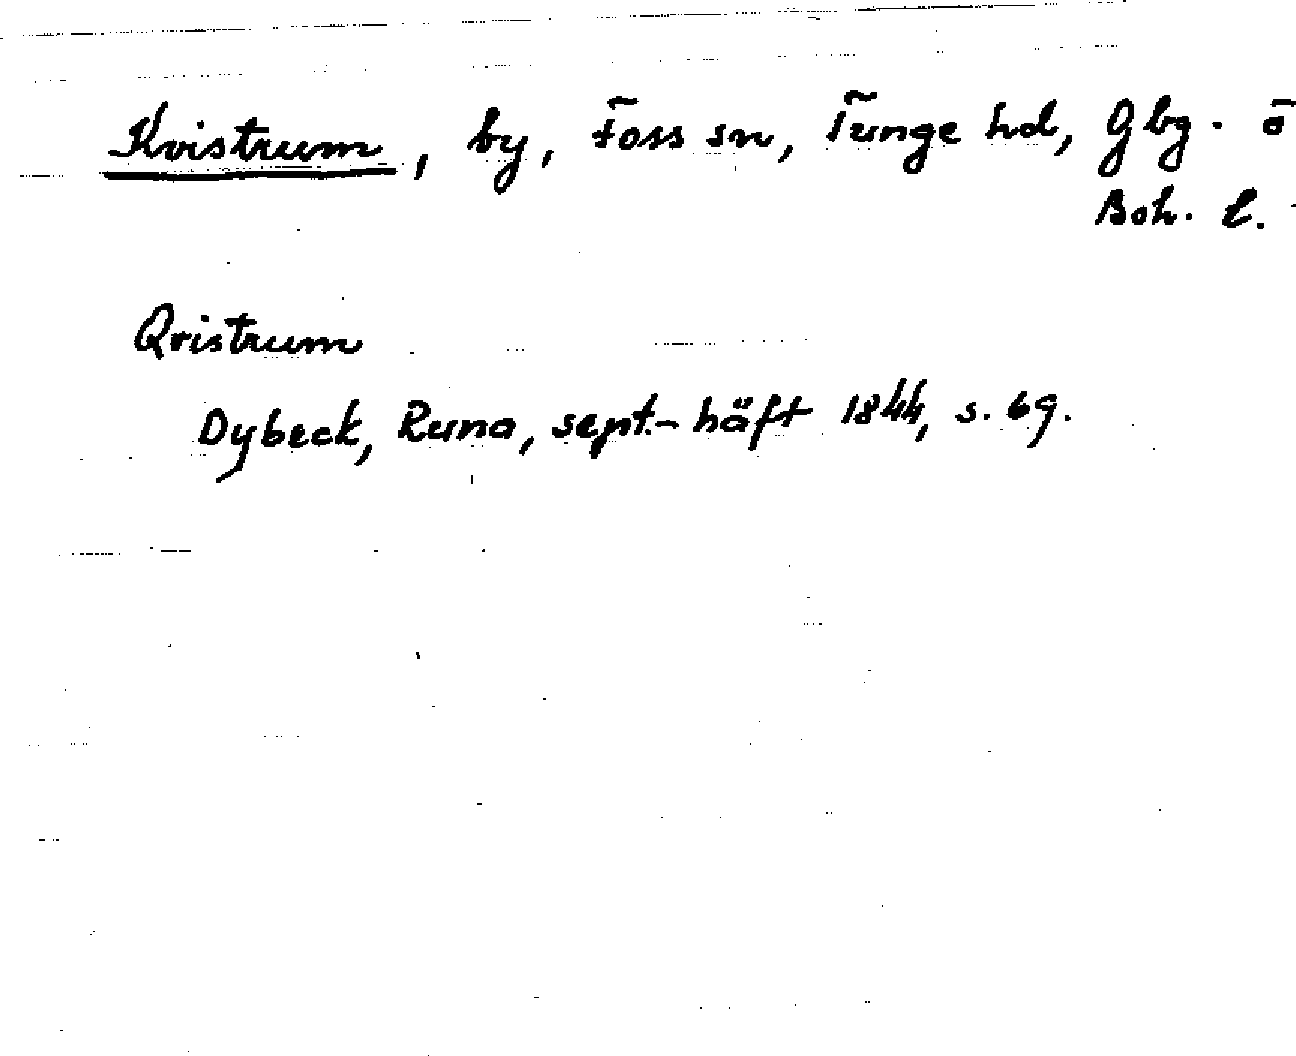 Kvistrum, by, Foss sn, Tunge hd, Gbg. ö
Boh. l.
Qvistrum
Dybeck, Runa, sept.-häft 1844, s. 69.